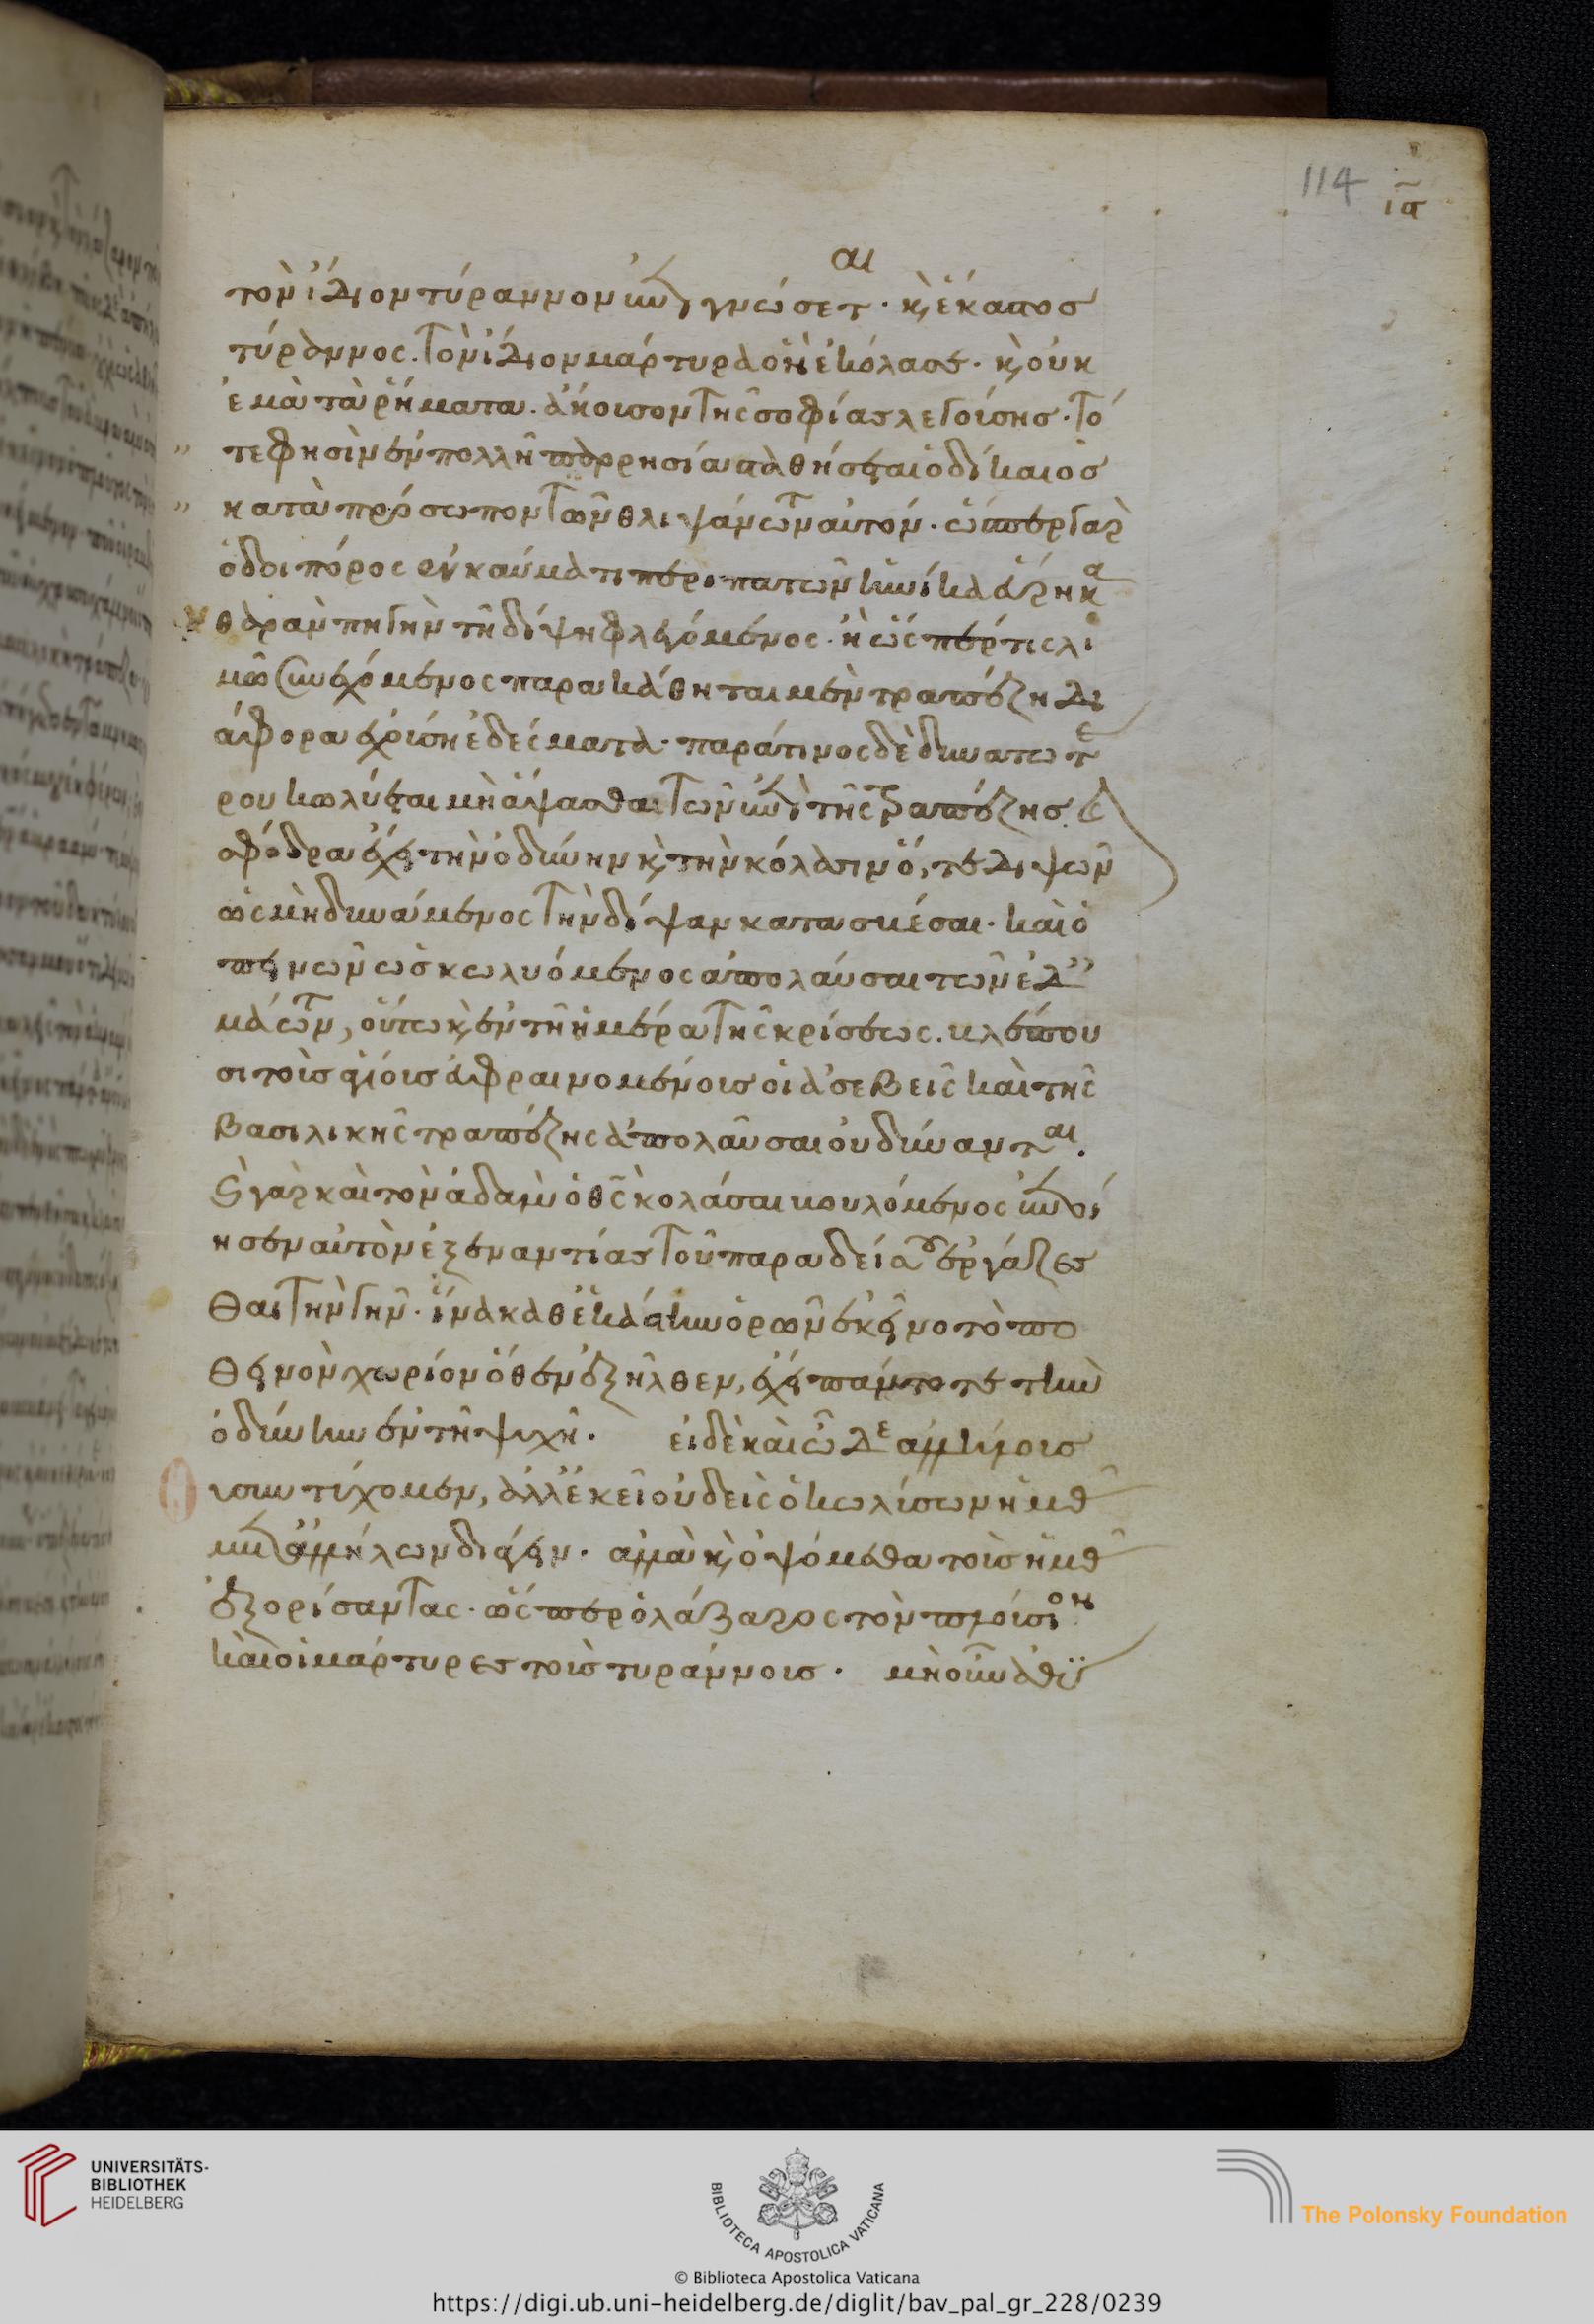 114 ια
τὸν ἴδιον τύραννον ἐπιγνώσεται· καὶ ἕκαστος
τύραννος. τὸν ἴδιον μάρτυρα ὃν ἐκόλασε· καὶ οὐκ
ἐμὰ τὰ ῥήματα. ἄκουσον τῆς σοφίας λεγούσης· τό
τε φησὶν ἐν πολλῇ παρρησία σταθήσεται ὁ δίκαιος
κατὰ πρόσωπον τῶν θλιψάντων αὐτόν. ὥσπερ γὰρ
ὁδοιπόρος ἐν καύματι περιπατῶν ἡνίκα ἄρη κα
θαρὰν πηγὴν τῆ δίψη φλεγόμενος· ἢ ὥσπερ τις λι
μῶ συνεχόμενος παρακάθηται μὲν τραπέζη δι
άφορα ἐχούση ἐδέσματα· παρά τινος δὲ δυνατωτέ
ρου κωλύεται μὴ ἅψασθαι τῶν ἐπὶ τῆς τραπέζης.
σφόδρα ἔχει τὴν ὀδύνην καὶ τὴν κόλασιν ὅ, τε διψῶν
ὡς μὴ δυνάμενος τὴν δίψαν κατασβέσαι· καὶ ὁ
πεινῶν ὡς κωλυόμενος ἀπολαύσαι τῶν ἐδεσ
μάτων, οὕτω καὶ ἐν τῆ ἡμέρα τῆς κρίσεως. βλέπου
σι τοὺς ἁγίους εὐφραινομένους οἱ ἀσεβεῖς καὶ τῆς
βασιλικῆς τραπέζης ἀπολαῦσαι οὐ δύνανται.
καὶ γὰρ καὶ τὸν ἀδὰμ ὁ θς κολάσαι βουλόμενος ἐποί
ησεν αὐτὸν ἐξ ἐναντίας τοῦ παραδείσου ἐργάζεσ
θαι τὴν γῆν· ἵνα καθεκάστην ὁρῶν ἐκεῖνο τὸ πο
θεινὸν χωρίον ὅθεν ἐξῆλθεν, ἔχει πάντοτε τὴν
ὀδύνην ἐν τῆ ψυχῆ. εἰ δὲ καὶ ὧδε ἀλλήλοις
συντύχομεν, ἀλλ' ἐκεῖ οὐδεὶς ὁ κωλύσων ἡμᾶς
μετ' ἀλλήλων διάγειν· ἀλλὰ καὶ ὀψόμεθα τοὺς ἡμᾶς
ἐξορίσαντας· ὥσπερ ὁ λάζαρος τὸν πλούσιον
καὶ οἱ μάρτυρες τοὺς τυράννους. μὴ οὖν ἀθυ
UNIVERSITÄTS-
BIBLIOTHEK
HEIDELBERG
BIBLIOTECA APOSTOLICA VATICANA
The Polonsky Foundation
© Biblioteca Apostolica Vaticana
https://digi.ub.uni-heidelberg.de/diglit/bav_pal_gr_228/0239